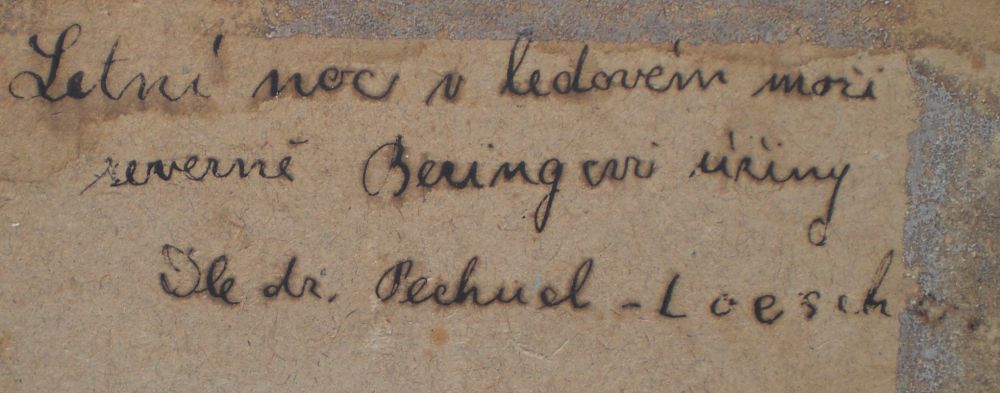 Letní noc v ledovém moři
severně Beringovi úžiny
Dle dr. Pechuel - Loesch